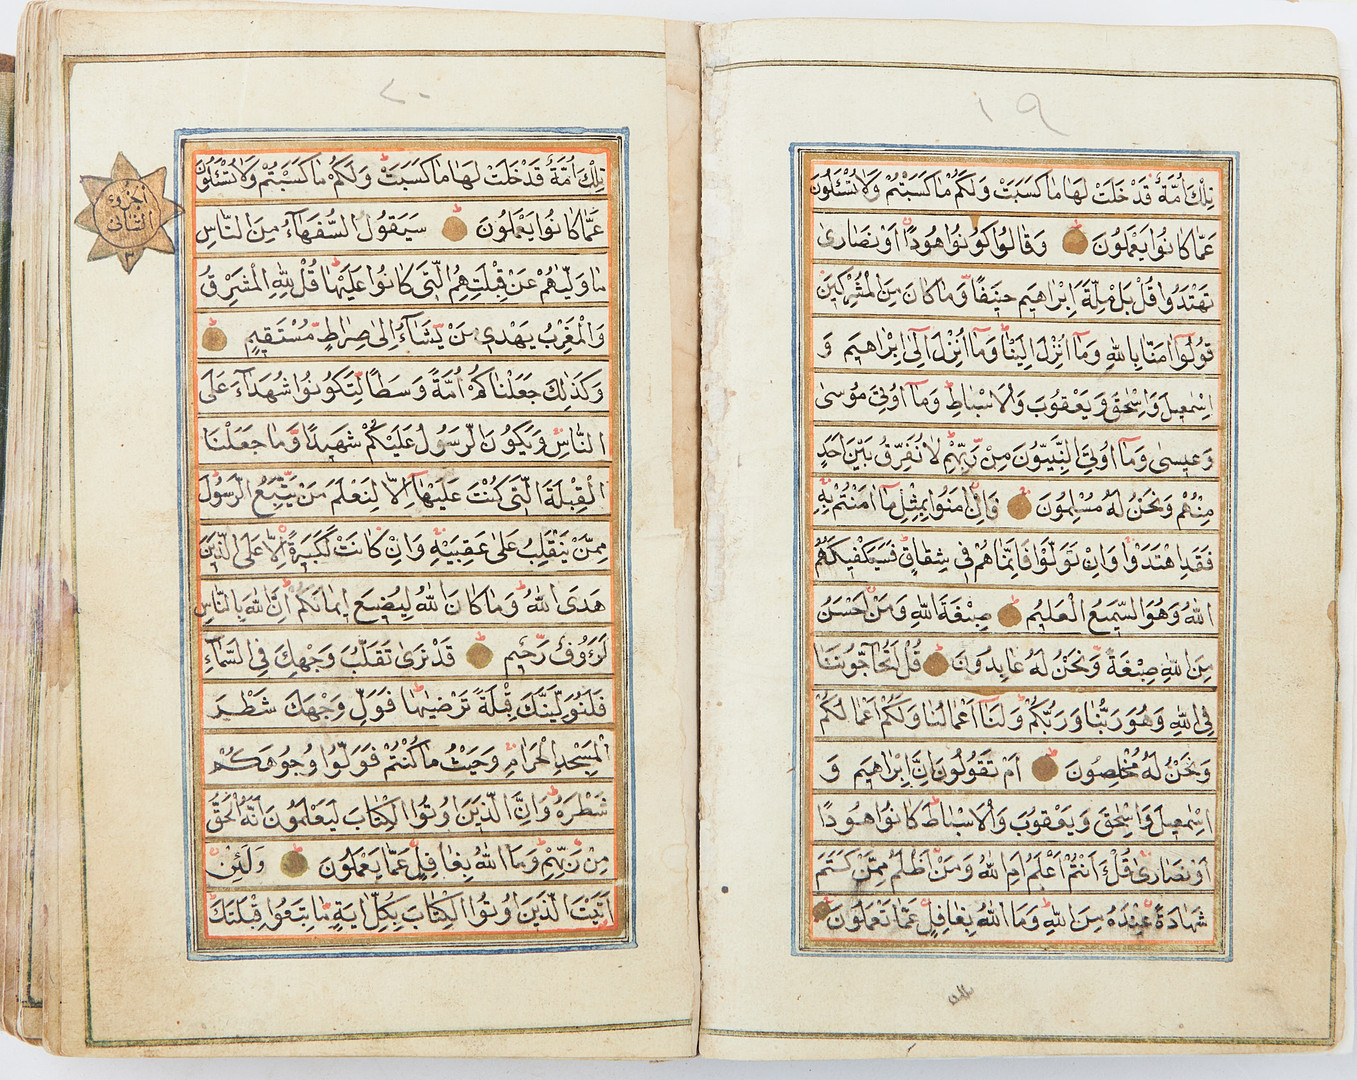 ١٩
تِلْكَ اُمَّةٌ قَدْ خَلَتْ لَهَا مَا كَسَبَتْ وَلَكُمْ مَا كَسَبْتُمْ وَلَا تُسْئَلُونَ
عَمَّا كَانُوا يَعْمَلُونَ وَقَالُوا كُونُوا هُودًا اَوْ نَصَارٰى
تَهْتَدُوا قُلْ بَلْ مِلَّةَ اِبْرٰاهِيمَ حَنِيفًا وَمَا كَانَ مِنَ الْمُشْرِكِينَ
قُولُوٓا اٰمَنَّا بِاللهِ وَمَآ اُنْزِلَ اِلَيْنَا وَمَآ اُنْزِلَ اِلٰٓى اِبْرٰاهِيمَ وَ
اِسْمٰعِيلَ وَاِسْحٰقَ وَيَعْقُوبَ وَالْاَسْبَاطِ وَمَآ اُوتِىَ مُوسٰى
وَعِيسٰى وَمَآ اُوتِىَ النَّبِيُّونَ مِنْ رَبِّهِمْ لَا نُفَرِّقُ بَيْنَ اَحَدٍ
مِنْهُمْ وَنَحْنُ لَهُ مُسْلِمُونَ فَاِنْ اٰمَنُوا بِمِثْلِ مَآ اٰمَنْتُمْ بِهِ
فَقَدِ اهْتَدَوْا وَاِنْ تَوَلَّوْا فَاِنَّمَا هُمْ فِى شِقَاقٍ فَسَيَكْفِيكَهُمُ
اللهُ وَهُوَ السَّمِيعُ الْعَلِيمُ صِبْغَةَ اللهِ وَمَنْ اَحْسَنُ
مِنَ اللهِ صِبْغَةً وَنَحْنُ لَهُ عَابِدُونَ قُلْ اَتُحَآجُّونَنَا
فِى اللهِ وَهُوَ رَبُّنَا وَرَبُّكُمْ وَلَنَآ اَعْمَالُنَا وَلَكُمْ اَعْمَالُكُمْ
وَنَحْنُ لَهُ مُخْلِصُونَ اَمْ تَقُولُونَ اِنَّ اِبْرٰاهِيمَ وَ
اِسْمٰعِيلَ وَاِسْحٰقَ وَيَعْقُوبَ وَالْاَسْبَاطَ كَانُوا هُودًا
اَوْ نَصَارٰى قُلْ ءَاَنْتُمْ اَعْلَمُ اَمِ اللهُ وَمَنْ اَظْلَمُ مِمَّنْ كَتَمَ
شَهَادَةً عِنْدَهُ مِنَ اللهِ وَمَا اللهُ بِغَافِلٍ عَمَّا تَعْمَلُونَ
٢٠
تِلْكَ اُمَّةٌ قَدْ خَلَتْ لَهَا مَا كَسَبَتْ وَلَكُمْ مَا كَسَبْتُمْ وَلَا تُسْئَلُونَ
عَمَّا كَانُوا يَعْمَلُونَ سَيَقُولُ السُّفَهَآءُ مِنَ النَّاسِ
مَا وَلّٰيهُمْ عَنْ قِبْلَتِهِمُ الَّتِى كَانُوا عَلَيْهَا قُلْ لِلّٰهِ الْمَشْرِقُ
وَالْمَغْرِبُ يَهْدِى مَنْ يَشَآءُ اِلٰى صِرَاطٍ مُسْتَقِيمٍ
وَكَذٰلِكَ جَعَلْنَاكُمْ اُمَّةً وَسَطًا لِتَكُونُوا شُهَدَآءَ عَلَى
النَّاسِ وَيَكُونَ الرَّسُولُ عَلَيْكُمْ شَهِيدًا وَمَا جَعَلْنَا
الْقِبْلَةَ الَّتِى كُنْتَ عَلَيْهَآ اِلَّا لِنَعْلَمَ مَنْ يَتَّبِعُ الرَّسُولَ
مِمَّنْ يَنْقَلِبُ عَلٰى عَقِبَيْهِ وَاِنْ كَانَتْ لَكَبِيرَةً اِلَّا عَلَى الَّذِينَ
هَدَى اللهُ وَمَا كَانَ اللهُ لِيُضِيعَ اِيمَانَكُمْ اِنَّ اللهَ بِالنَّاسِ
لَرَؤُوفٌ رَحِيمٌ قَدْ نَرٰى تَقَلُّبَ وَجْهِكَ فِى السَّمَآءِ
فَلَنُوَلِّيَنَّكَ قِبْلَةً تَرْضٰيهَا فَوَلِّ وَجْهَكَ شَطْرَ
الْمَسْجِدِ الْحَرَامِ وَحَيْثُ مَا كُنْتُمْ فَوَلُّوا وُجُوهَكُمْ
شَطْرَهُ وَاِنَّ الَّذِينَ اُوتُوا الْكِتَابَ لَيَعْلَمُونَ اَنَّهُ الْحَقُّ
مِنْ رَبِّهِمْ وَمَا اللهُ بِغَافِلٍ عَمَّا يَعْمَلُونَ وَلَئِنْ
اَتَيْتَ الَّذِينَ اُوتُوا الْكِتَابَ بِكُلِّ اٰيَةٍ مَا تَبِعُوا قِبْلَتَكَ
الثانى